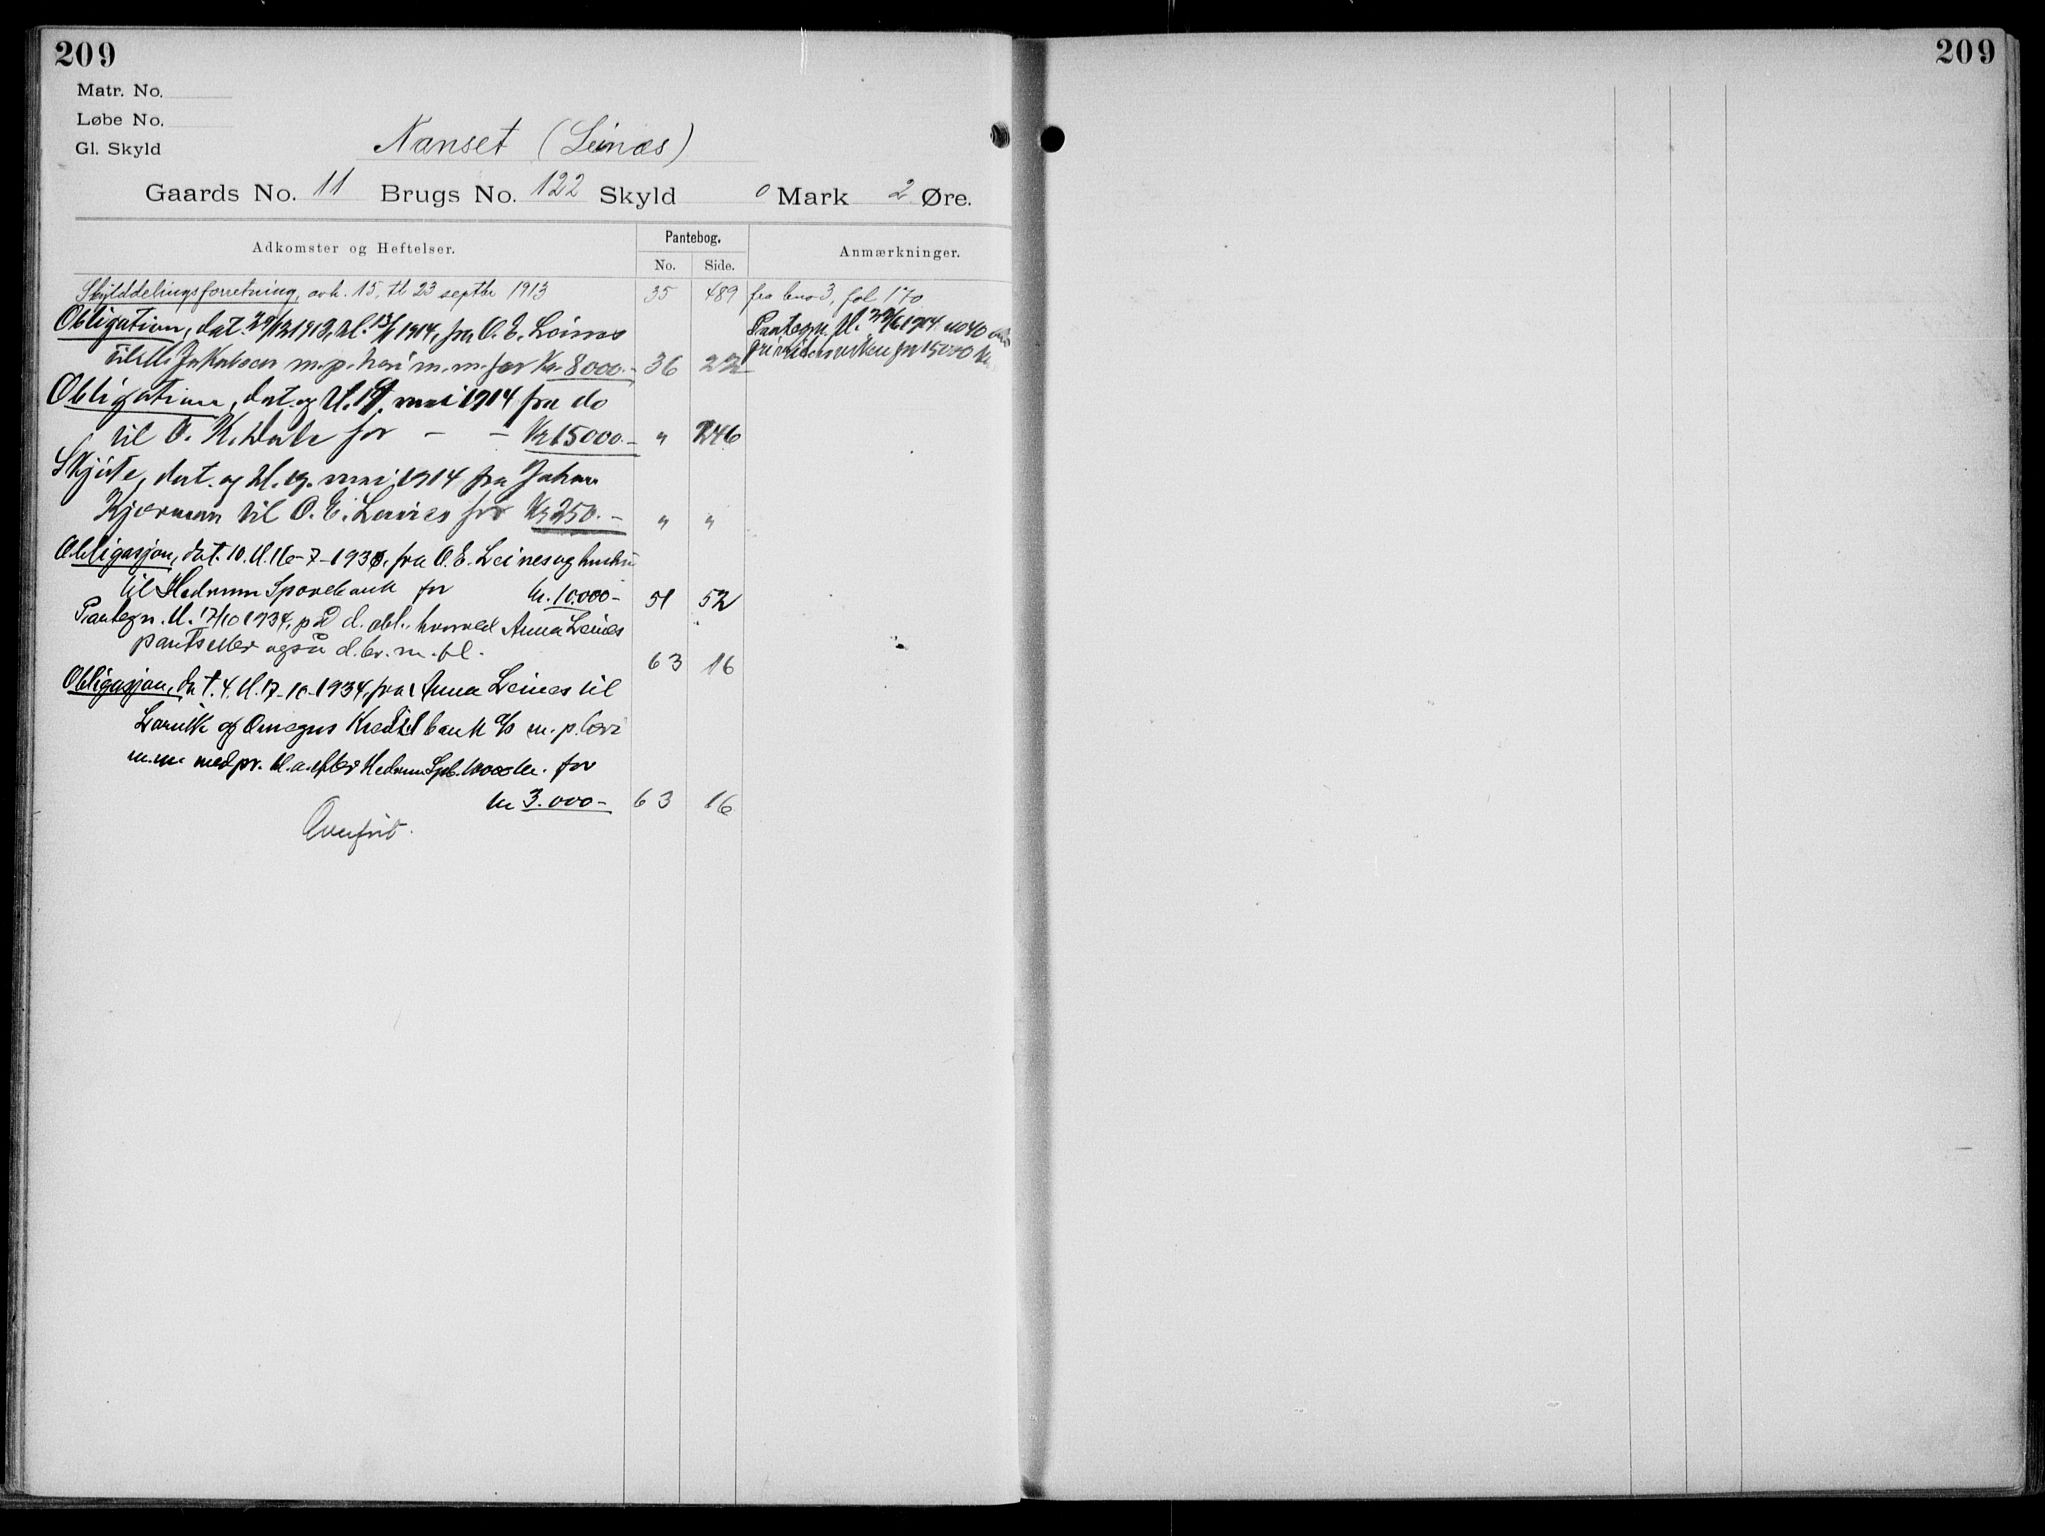 209
209
Matr. No.
Løbe No.
Gl. Skyld
Nanset (Leinæs)
Gaards No. 11 Brugs No. 122 Skyld 0 Mark 2 Øre.
Adkomster og Heftelser. Pantebog. Anmærkninger.
No. Side.
Skylddelingsforretning, avh. 15, tl 23 septbr 1913 35 489 fra bno 3, fol 170
Obligation, dat. 29/12 1913, tl. 13/1 1914, fra O. E. Leines Pantegn. tl. 1914
til M. Jakobsen m. p. havi m. m. for Kr 8000.- 36 22 for 15000 kr
Obligation, dat. og tl. 19. mai 1914 fra do
til O. K. Dale for - - Kr 15000.- " 246
Skjøte, dat. og tl. 19. mai 1914 fra Johan
Kjærman til O. E. Leines for Kr 250.- " "
Obligasjon, dat. 10. tl. 16-7-1930, fra O. E. Leines og hustru
til Hedrum Sparebank for kr. 10.000- 51 52
Pantegn. tl. 17/10 1934, på d. obl., hvorved Anna Leines
pantsetter også d. br. m. fl. 63 16
Obligasjon, dat. 4. tl. 17-10-1934, fra Anna Leines til
Larvik og Omegns Kreditbank a/s m. p. havi
m. m. med pr. bl. a. efter Hedrum Spb. 10000 kr. for
kr 3.000- 63 16
Overført.